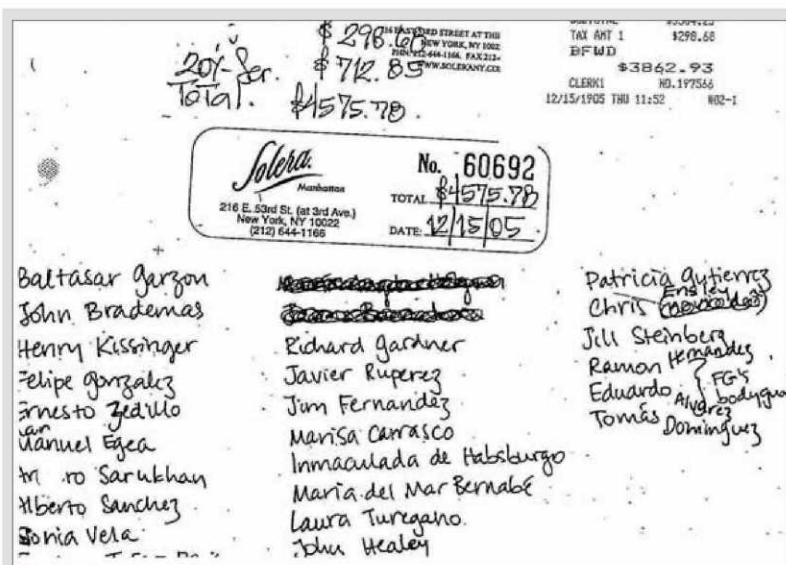 $ 298.68
216 EAST 53RD STREET AT THIRD
NEW YORK, NY 1002
FAX 212-
WWW.SOLERANY.CO
20% Ser. $ 712.85
Total. $4575.78
TAX AMT 1 $298.68
BFWD
$3862.93
CLERK1 NO.197566
12/15/1905 THU 11:52 #02-1
Solera.
Manhattan
216 E. 53rd St. (at 3rd Ave.)
New York, NY 10022
(212) 644-1166
No. 60692
TOTAL $4575.78
DATE: 12/15/05
Baltasar Garzon
John Brademas
Henry Kissinger
Felipe Gonzalez
Ernesto Zedillo
Manuel Egea
Sarukhan
Alberto Sanchez
Sonia Vela
Richard Gardner
Javier Ruperez
Jim Fernandez
Marisa Carrasco
Inmaculada de Habsburgo
Maria del Mar Bernabé
Laura Turegano.
John Healey
Patricia Gutierrez
Chris Ensley
Jill Steinberg
Ramon Hernandez
Eduardo Alvarez
Tomás Dominguez
FG's
bodygua